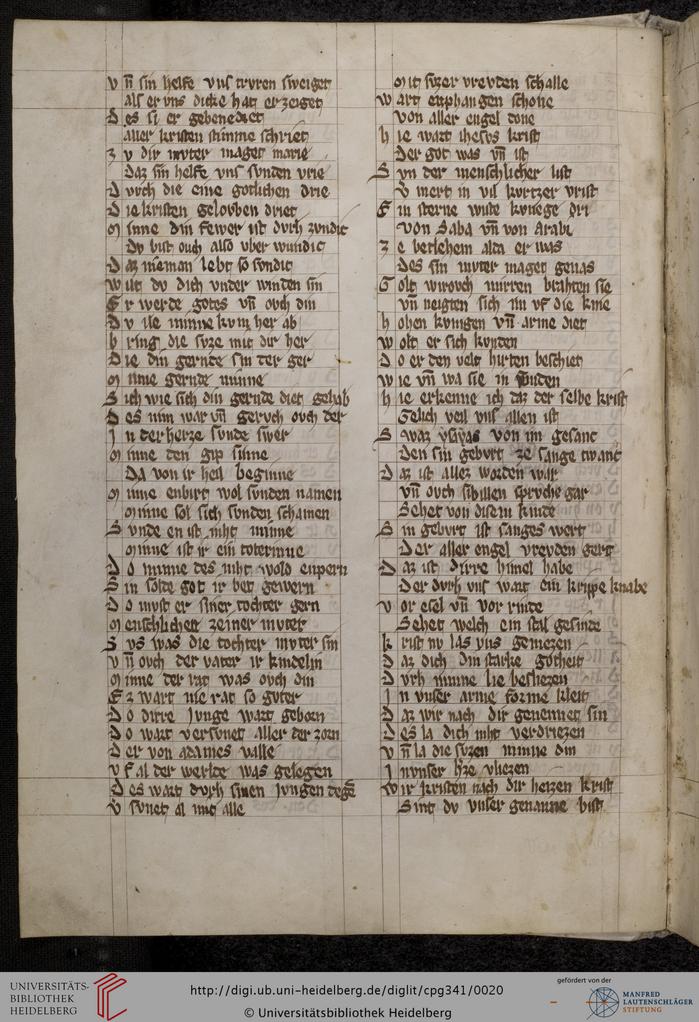 vñ sin helfe vns truren sweiget
als er vns dicke hat erzeiget
Des si er gebenediet
aller kristen stimme schriet
zv dir mvter maget marie
Daz sin helfe vns sunden vrie
Dvrch die eine gotlichen drie
Die kristen gelovben driet
minne din fewer ist dvrh zvndic
Dv bist ouch also vber wundic
Daz nieman lebt so sundic
wilt dv dich vnder winden sin
Er werde gotes vñ ovch din
Dv ile minne kvm her ab
bring die svze mit dir her
Die din gernde sin ter ger
minne gernde minne
Sich wie sich din gernde diet gehab
Des nim war vñ gervch ovch der
In der herze sunde swer
minne den gip sinne
Da von ir heil beginne
minne enbirt wol sunden namen
minne sol sich sunden schamen
Svnde en ist niht minne
minne ist ir ein toterinne
Do minne des niht wold enpern
Sin solde got ir bet gewern
Do mvst er siner tochter gern
menschlichen zeiner mvter
Svs was die tochter mvter sin
vñ ovch der vater ir kindelin
minne der rat was ovch din
Ez wart nie rat so guter
Do dirre Junge wart geborn
Do wart versunet aller der zorn
Der von adames valle
vf al der werlde was gelegen
Des wart dvrh sinen Jvngen
svnet al mit alle
mit svzer vrevden schalle
wart enphangen schone
von aller engel done
hie wart ihesvs krist
Der got was vñ ist
Svn der menschlicher list
v in vil kvrtzer vrist
Ein sterne wiste kvnege dri
von Saba vñ von Arabi
ze betlehem alda er was
Des sin mvter maget genas
Golt wirovch mirren brahten sie
vñ neigten sich im vf die knie
hohen kvnigen vñ arme diet
wolt er sich kvnden
Do er den velt hirten beschiet
wie vñ wa sie in fvnden
hie erkenne ich daz der selbe krist
Gelich veil vns allen ist
Swaz ysayas von im gesanc
Den sin gebvrt ze sange twanc
Daz ist allez worden war
vñ ovch sibillen sprvche gar
Sehet von disem kinde
Sin gebvrt ist sanges wert
Der aller engel vrevden gert
Daz ist dirre himel habe
Der dvrh vns wart ein krippe knabe
vor esel vñ vor rinde
Sehet welch ein stal gesinde
krist nv las vns geniezen
Daz dich din starke gotheit
Dvrh minne lie besliezen
In vnser arme forme kleit
Daz wir nach dir genennet sin
Des la dich niht verdriezen
vñ la die svzen minne din
In vnser hze vliezen
wir kristen nach dir heizen krist
Sint dv vnser genanne bist
UNIVERSITÄTS-
BIBLIOTHEK
HEIDELBERG
http://digi.ub.uni-heidelberg.de/diglit/cpg341/0020
© Universitätsbibliothek Heidelberg
gefördert von der
MANFRED
LAUTENSCHLÄGER
STIFTUNG